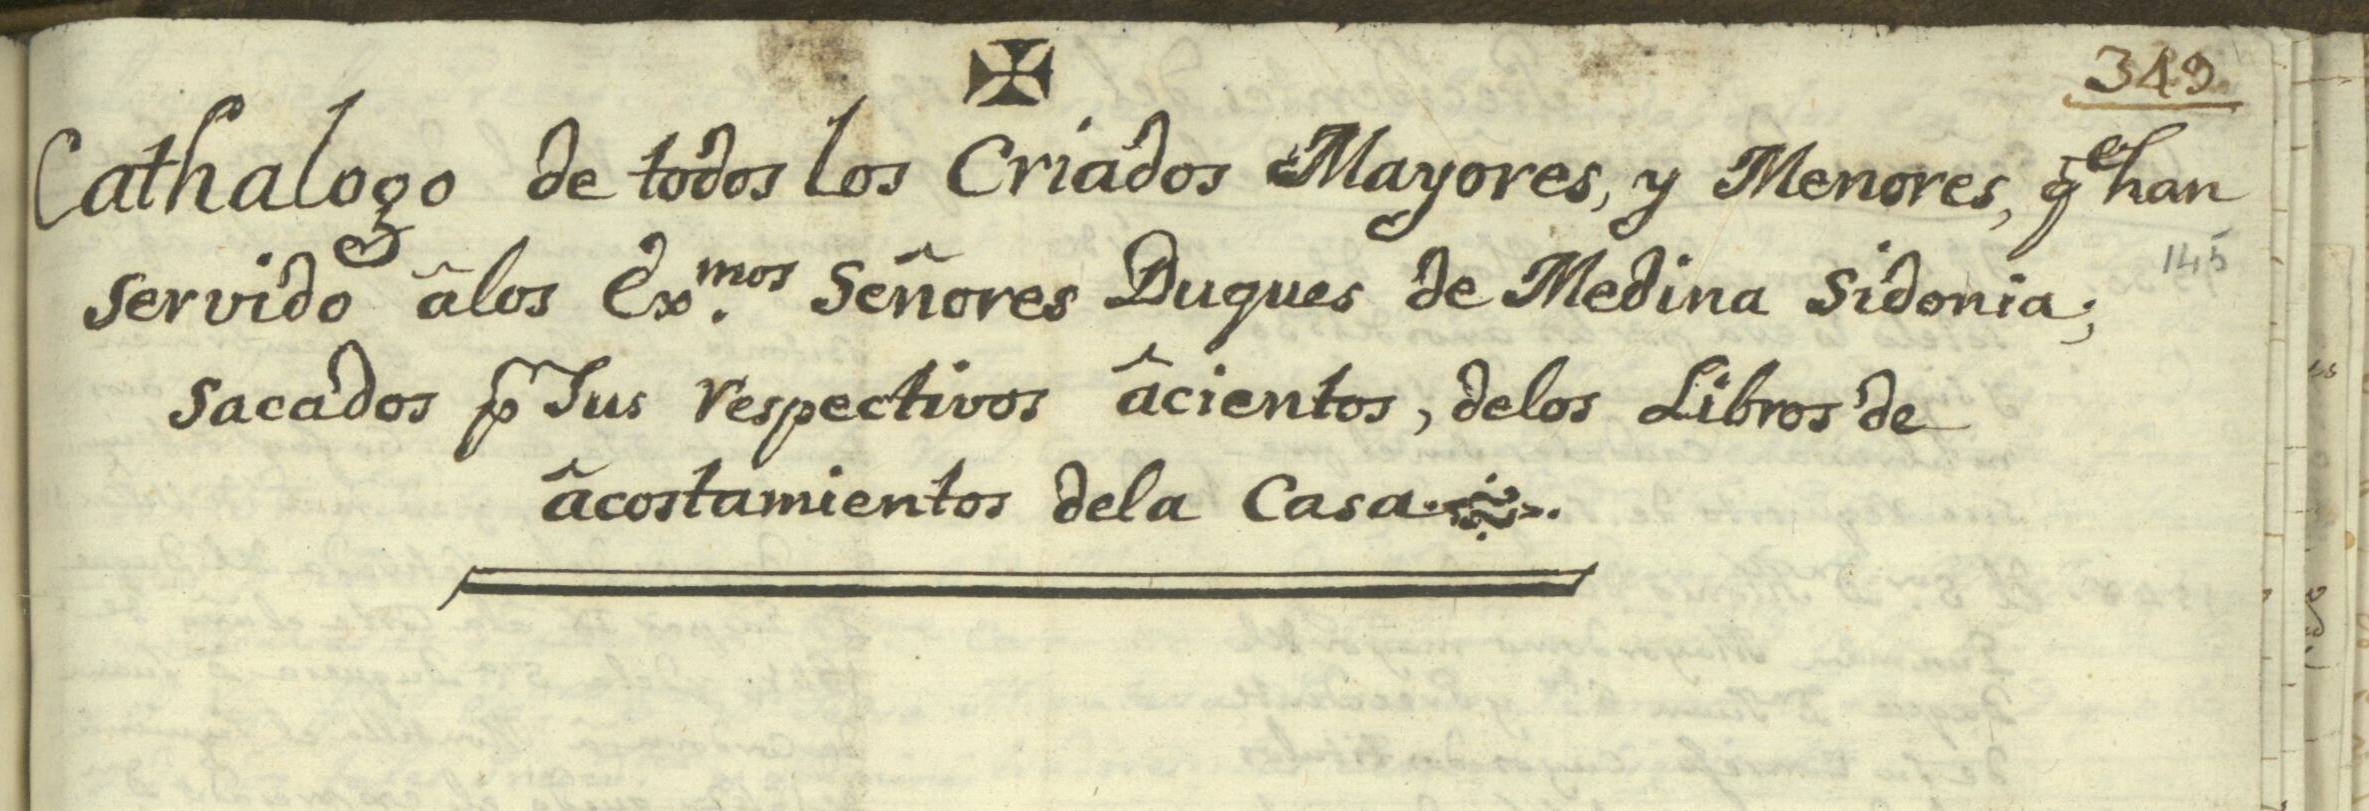 349
Cathalogo de todos los Criados Mayores, y Menores, q̃e han
145
servido âlos Exmos. Señores Duques de Medina Sidonia;
sacados p̃ sus respectivos âcientos, delos Libros de
âcostamientos dela Casa.